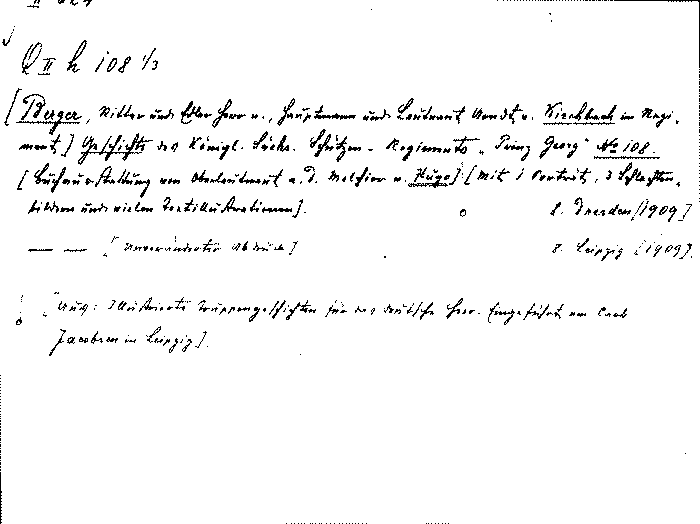 Q II h 108 1/3
[Berger, Ritter und Edler Herr v., Hauptmann und Leutnant Arndt v. Kirchbach im Regi-
ment.] Geschichte des Königl. Sächs. Schützen-Regiments „Prinz Georg" No 108.
[Buchausstattung von Oberleutnant a. D. Melchior v. Hugo]. [Mit 1 Porträt, 3 Schlachten-
bildern und vielen Textillustrationen]. 8. Dresden [1909]
— — [Unveränderter Abdruck] 8. Leipzig [1909].
[Aus: Illustrierte Truppengeschichten für das deutsche Heer. Eingeführt von
Jacobsen in Leipzig].